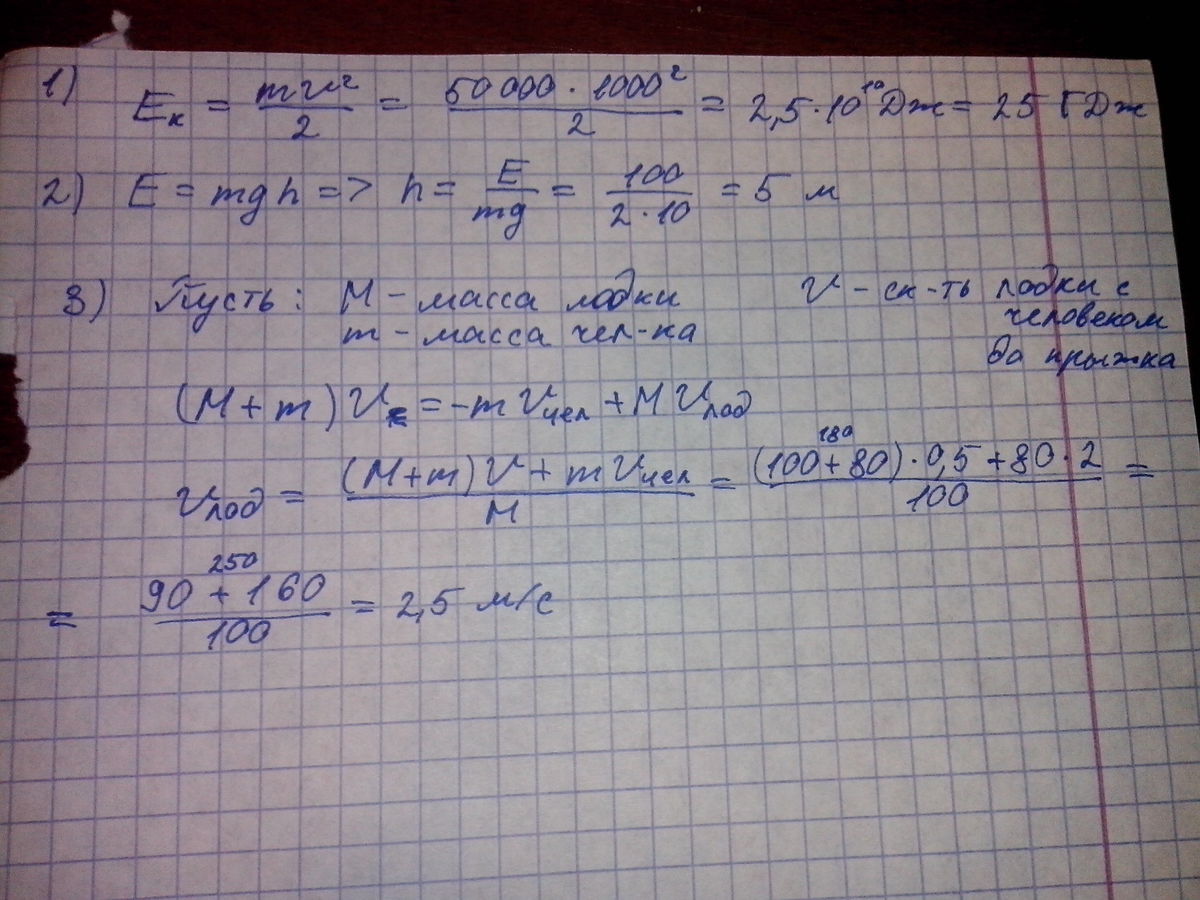 1) Eк = mv²/2 = 50 000 · 1000²/2 = 2,5·10¹⁰ Дж = 25 ГДж
2) E = mgh => h = E/mg = 100/2·10 = 5 м
3) Пусть: M - масса лодки v - ск-ть лодки с
m - масса чел-ка человеком
до прыжка
(M + m) v = -m vчел + M vлод
vлод = (M+m)v + m vчел/M = (100+80)·0,5 + 80·2/100 =
180
250
= 90 + 160/100 = 2,5 м/с